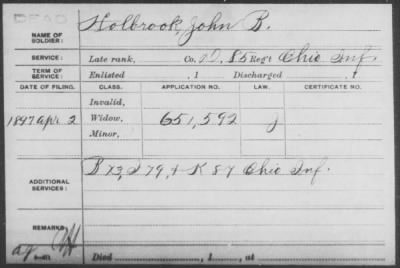 DEAD
NAME OF SOLDIER: Holbrook, John B.
SERVICE: Late rank, Co. D, 85 Reg't Ohio Inf.
TERM OF SERVICE: Enlisted , 1 Discharged , 1
DATE OF FILING. CLASS. APPLICATION NO. LAW. CERTIFICATE NO.
Invalid,
1897 Apr. 2 Widow, 651,592 J
Minor,
ADDITIONAL SERVICES: B 73, I 79, & K 87 Ohio Inf.
REMARKS:
Died , 1 , at